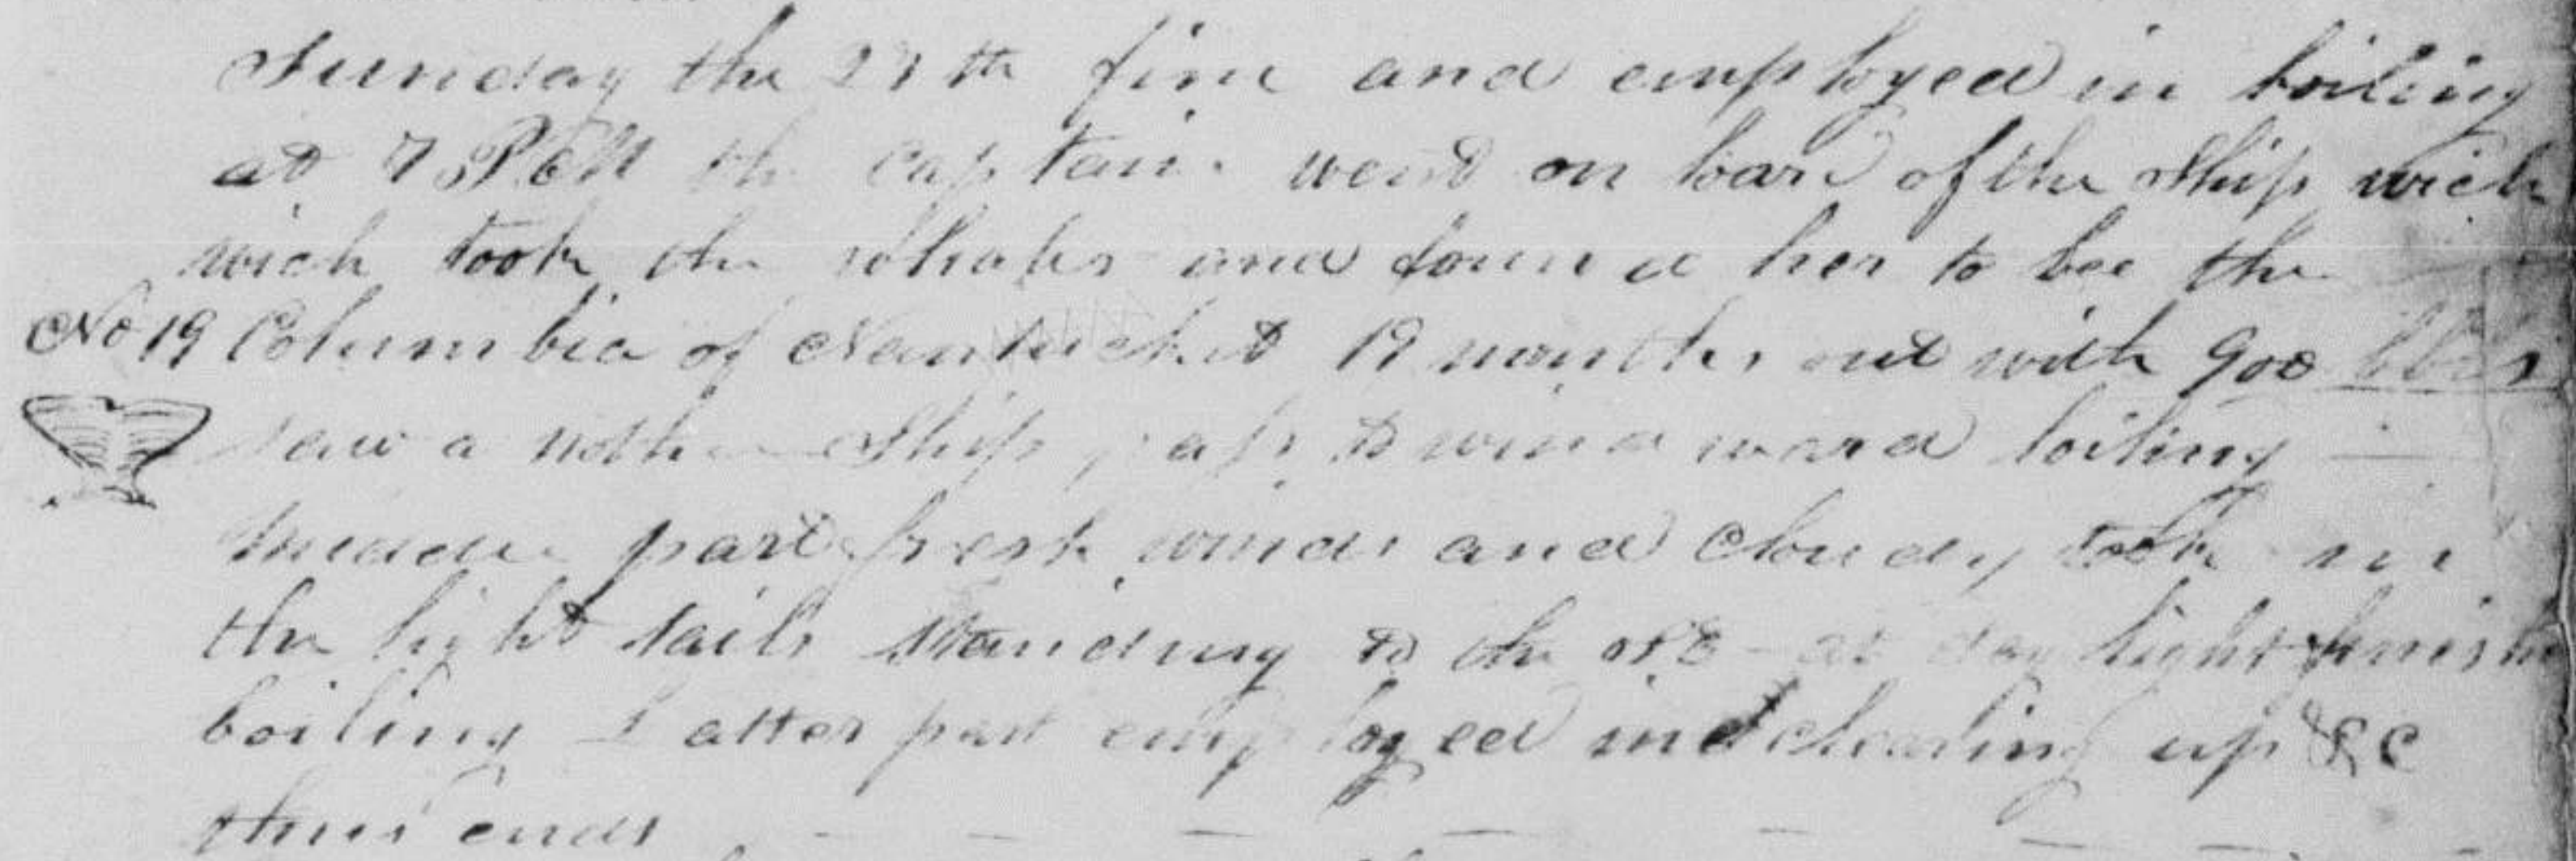 Sunday the 27th fine and employed in boiling
at 7 PM the captain went on board of the Ship wich
wich took the whales and found her to bee the
No 19 Columbia of Nantucket 19 months out with 900 bbls
saw a nother Ship pass to windward boiling
Middle part fresh winds and cloudy took in
the light sails standing to the NE at day light finish
boiling Latter part employed in clearing up &C
thus ends